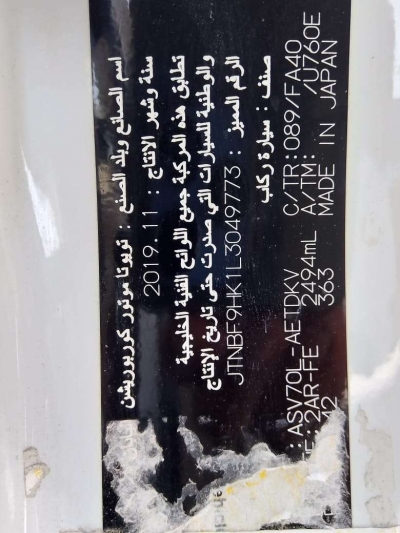 اسم الصانع وبلد الصنع : تويوتا موتور كوربوريشن
سنة وشهر الانتاج : 2019.11
تطابق هذه المركبة جميع اللوائح الفنية الخليجية
والوطنية للسيارات التي صدرت حتى تاريخ الإنتاج
الرقم المميز : JTNBF9HK1L3049773
صنف : سيارة ركاب
: ASV70L-AETDKV C/TR: 089/FA40
: 2AR-FE 2494mL A/TM: /U760E
363 MADE IN JAPAN